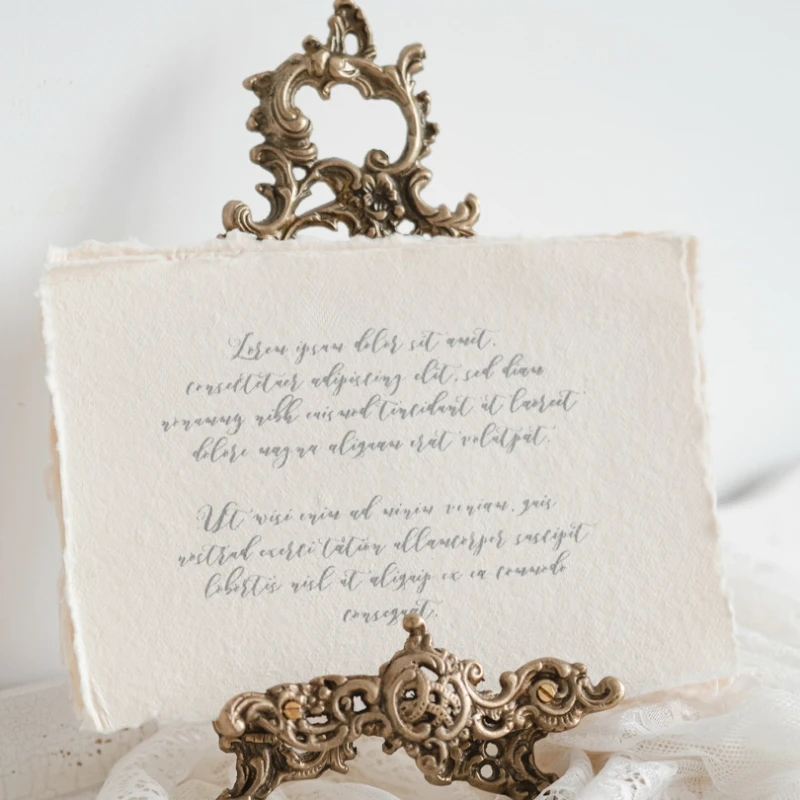 Lorem ipsum dolor sit amet,
consectetuer adipiscing elit, sed diam
nonummy nibh euismod tincidunt ut laoreet
dolore magna aliquam erat volutpat.
Ut wisi enim ad minim veniam, quis
nostrud exerci tation ullamcorper suscipit
lobortis nisl ut aliquip ex ea commodo
consequat.